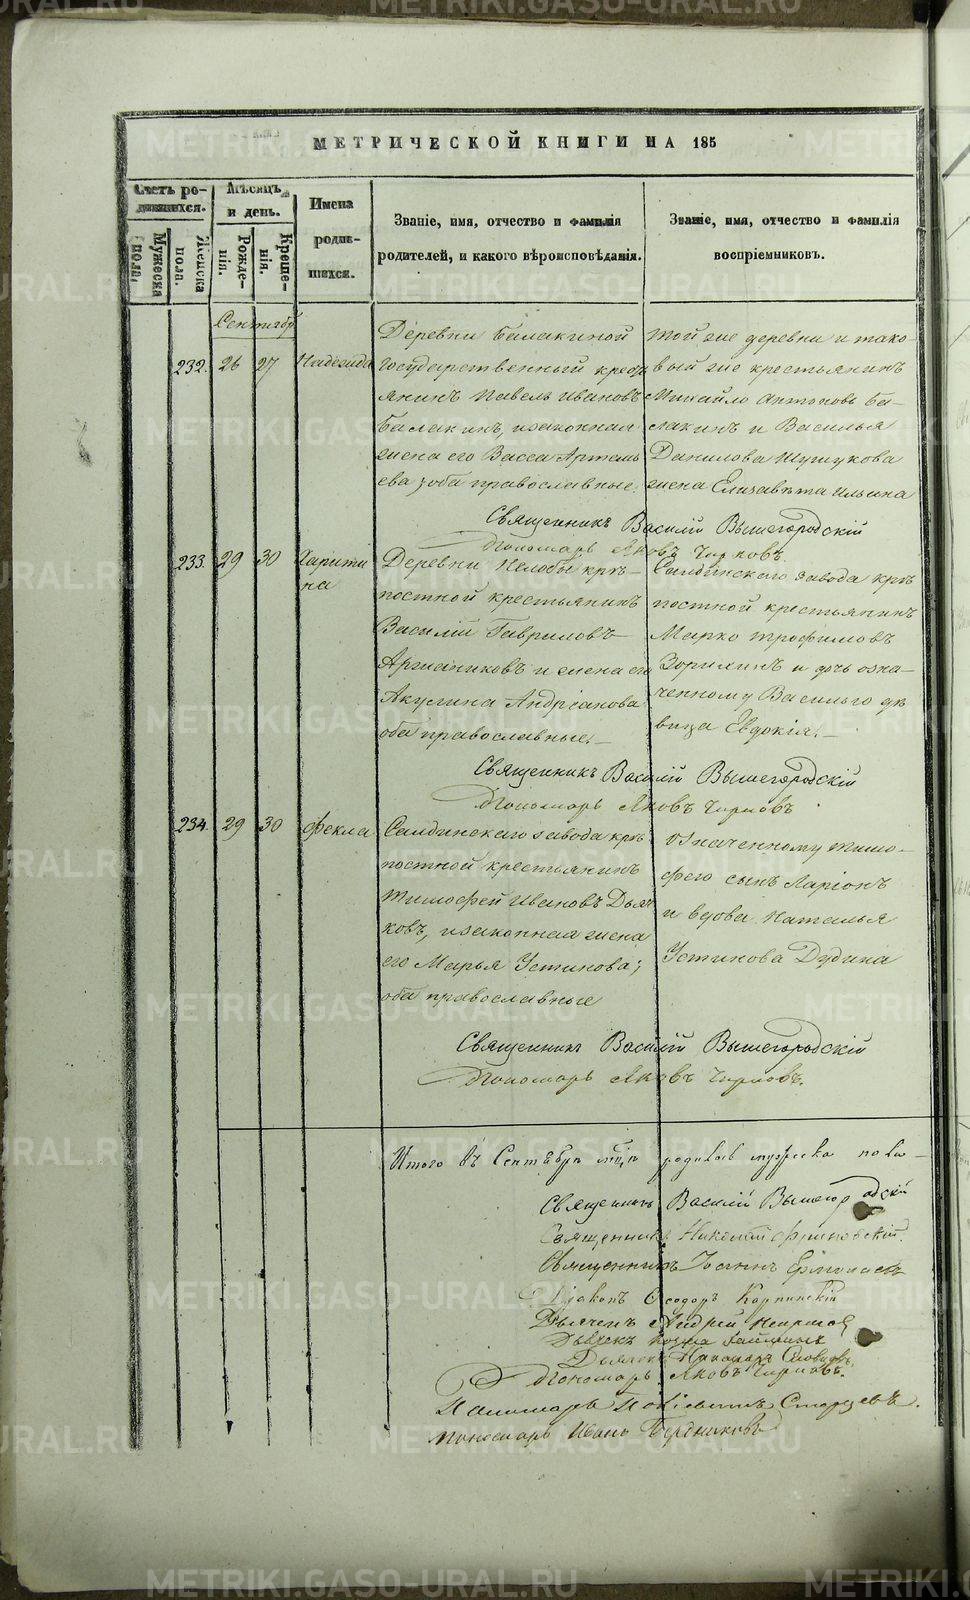 МЕТРИЧЕСКОЙ КНИГИ НА 185
Счетъ ро-
дившихся.
Мужеска пола.
Женска пола.
Мѣсяцъ
и день.
Рожде-
нія.
Креще-
нія.
Имена
родив-
шихся.
Званіе, имя, отчество и фамилія
родителей, и какого вѣроисповѣданія.
Званіе, имя, отчество и фамилія
воспріемниковъ.
Сентябр
232. 26 27 Надежда
Деревни Балакиной
государственный крест
янинъ Павелъ Ивановъ
Балакинъ, изаконная
жена его Васса Артемь
ева, оба православные.
той же деревни и тако-
вый же крестьянинъ
Михайло Антоновъ Ба-
лакинъ и Василья
Данилова Шушукова
жена Елизавѣта Ильина
Священникъ Василій Вышегородскій
Пономарь Яковъ Чирковъ.
233. 29 30 Харити
на
Деревни Нелобы крѣ-
постной крестьянинъ
Василій Гавриловъ
и жена его
Акулина Андріанова
оба православные.
Салдинскаго завода крѣ
постной крестьянинъ
Марко Трофимовъ
Зорихинъ и дочь озна-
ченному Василью дѣ
вица Евдокія.
Священникъ Василій Вышегородскій
Пономарь Яковъ Чирковъ
234. 29 30 Фекла
Салдинскаго завода крѣ
постной крестьянинъ
Тимофей Ивановъ Дья
ковъ, изаконная жена
его Марья Устинова;
оба православные
означенному Тимо-
фею сынъ Ларіонъ
и вдова Наталья
Устинова Дудина
Священникъ Василій Вышегородскій
Пономарь Яковъ Чирковъ.
Итого въ Сентябрѣ мужеска пола
Священникъ Василій Вышегородскій
Священникъ Николай
Священникъ Іоаннъ
Діаконъ Ѳеодоръ Карпинскій
Дьячекъ Андрей
Дьячекъ
Дьячекъ
Пономарь Яковъ Чирковъ.
Пономарь Старцевъ.
Пономарь Иванъ Бердниковъ
METRIKI.GASO-URAL.RU